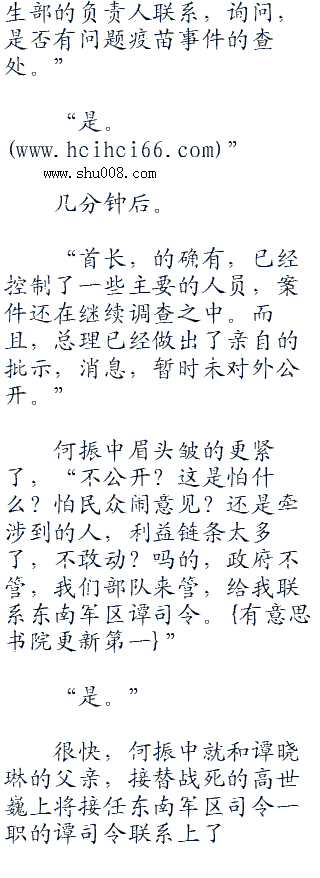 生部的负责人联系，询问，
是否有问题疫苗事件的查
处。”
“是。
(www.hcihci66.com)”
www.shu008.com
几分钟后。
“首长，的确有，已经
控制了一些主要的人员，案
件还在继续调查之中。而
且，总理已经做出了亲自的
批示，消息，暂时未对外公
开。”
何振中眉头皱的更紧
了，“不公开？这是怕什
么？怕民众闹意见？还是牵
涉到的人，利益链条太多
了，不敢动？吗的，政府不
管，我们部队来管，给我联
系东南军区谭司令。{有意思
书院更新第一}”
“是。”
很快，何振中就和谭晓
琳的父亲，接替战死的高世
巍上将接任东南军区司令一
职的谭司令联系上了